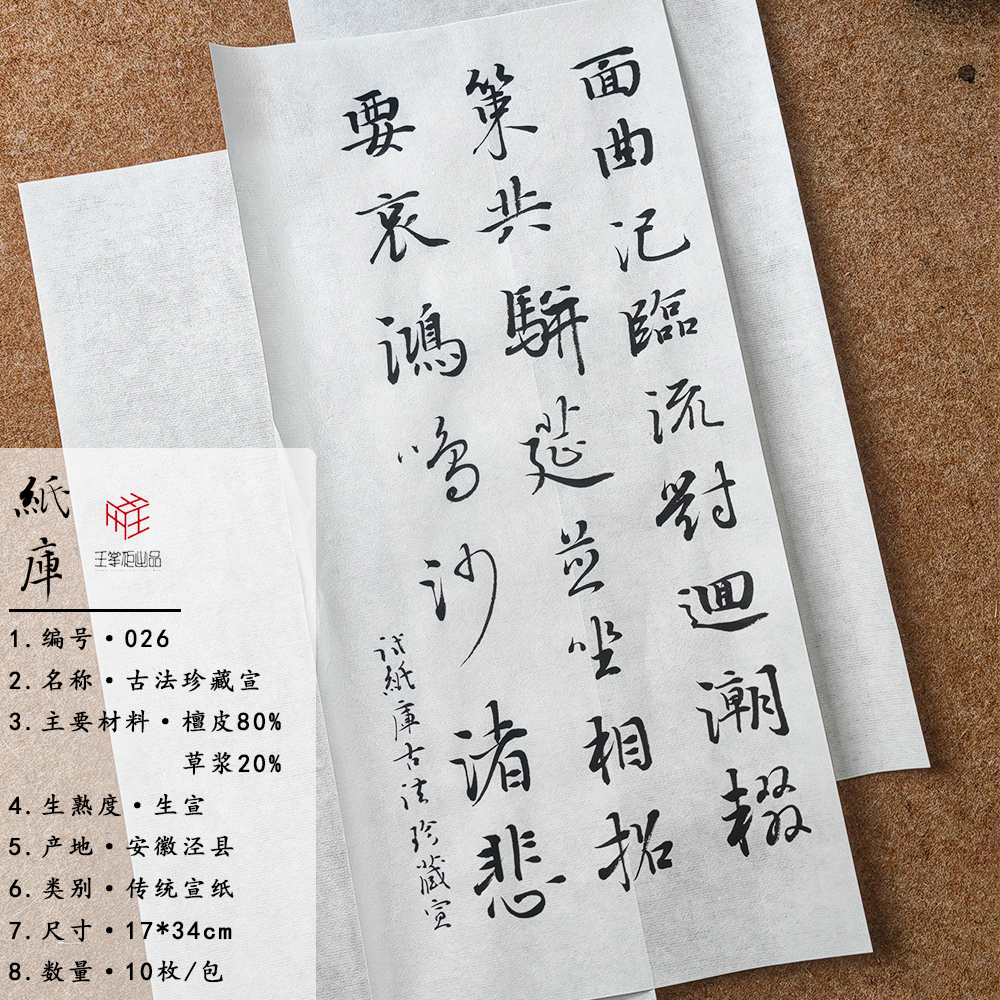 面曲汜臨流對迴潮輟
策共駢筵並坐相招
要哀鴻鳴沙渚悲
試紙庫古法珍藏宣
紙庫
王掌柜出品
1.编号·026
2.名称·古法珍藏宣
3.主要材料·檀皮80%
草浆20%
4.生熟度·生宣
5.产地·安徽泾县
6.类别·传统宣纸
7.尺寸·17*34cm
8.数量·10枚/包